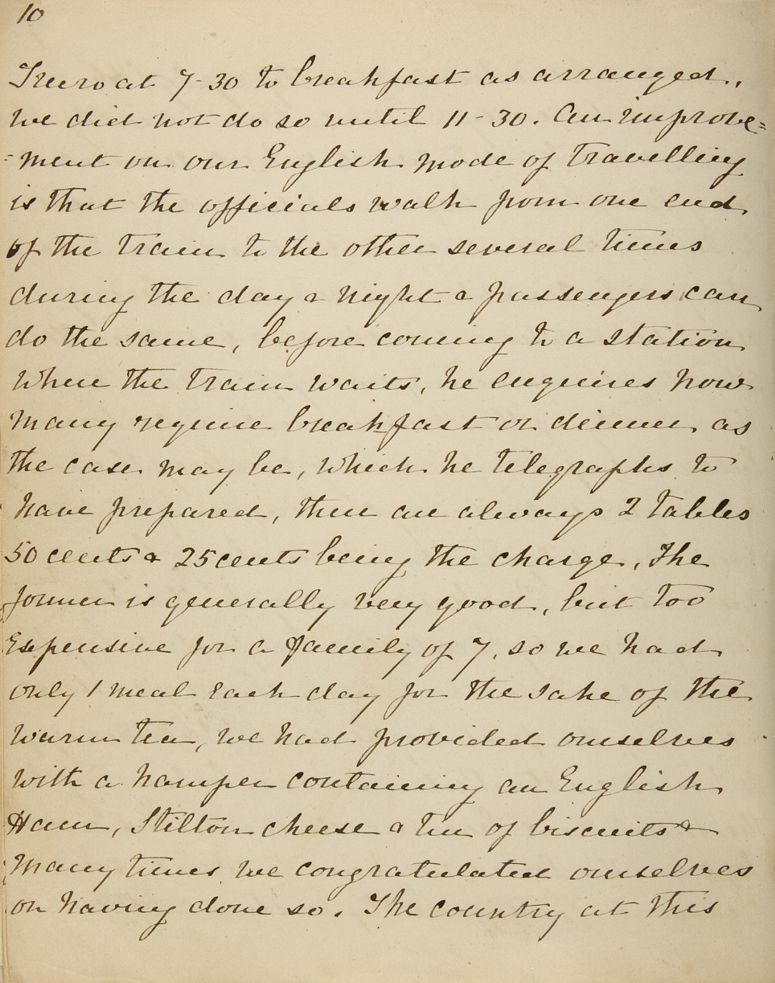 10
Truro at 7-30 to breakfast as arranged,
we did not do so until 11-30. An improve=
=ment on our English mode of Travelling
is that the officials walk from one end
of the Train to the other several times
during the day & night & passengers can
do the same, before coming to a station
where the Train waits, he enquires how
many require breakfast or dinner, as
the case may be, which he telegraphs to
have prepared, there are always 2 tables
50 cents & 25 cents being the charge, The
former is generally very good, but too
Expensive for a family of 7, so we had
only 1 meal each day for the sake of the
warm tea, we had provided ourselves
with a hamper containing an English
Ham, Stilton cheese & tin of biscuits &
many times we congratulated ourselves
on having done so. The country at this